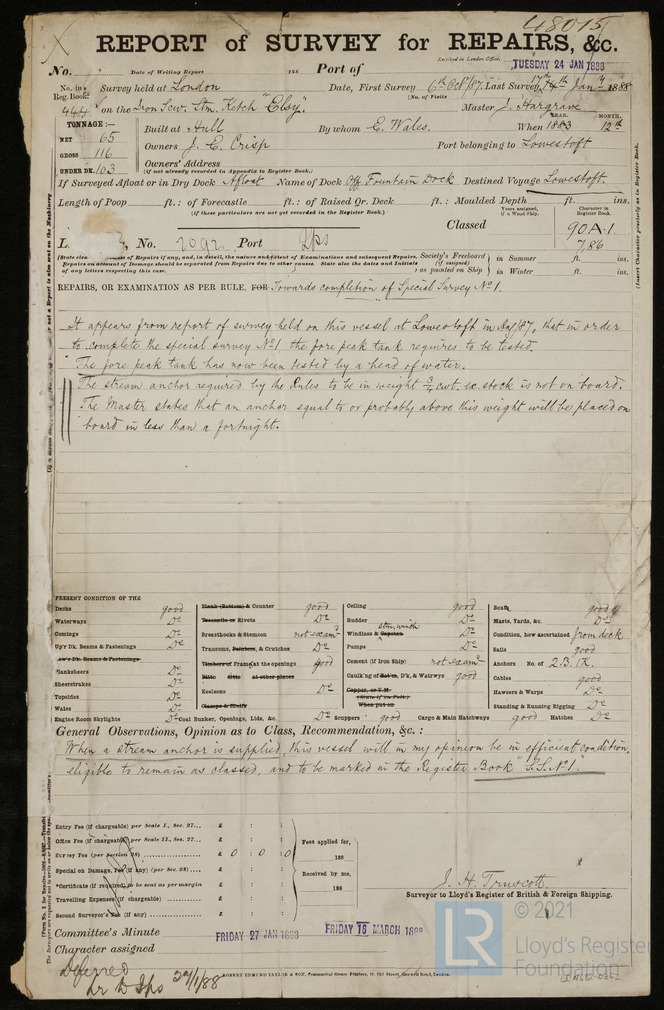 48015
REPORT of SURVEY for REPAIRS, &c.
Received in London Office, TUESDAY 24 JAN 1888
No. Date of Writing Report 188 Port of
No. in Reg. Book. Survey held at London Date, First Survey 6th Octr/87. Last Survey 17th Jany 1888
(No. of Visits
444 on the Iron Scw. Stm. Ketch "Elsy." Master J. Hargrave
TONNAGE:— YEAR. MONTH.
NET 65 Built at Hull By whom E. Wales. When 1883 12th
GROSS 116 Owners J. E. Crisp Port belonging to Lowestoft
UNDER DK. 103 Owners' Address
(if not already recorded in Appendix to Register Book.)
If Surveyed Afloat or in Dry Dock Afloat Name of Dock Off Fountain Dock Destined Voyage Lowestoft.
Length of Poop ft.: of Forecastle ft.: of Raised Qr. Deck ft.: Moulded Depth ft. ins.
(If these particulars are not yet recorded in the Register Book.)
Years assigned, if a Wood Ship. Character in Register Book.
Classed 90A.1.
7,86
No. Port Ips
of Repairs if any, and, in detail, the nature and extent of Examinations and subsequent Repairs.
Repairs on account of Damage should be separated from Repairs due to other causes. State also the dates and Initials
of any letters respecting this case.
Society's Freeboard (if assigned) as painted on Ship in Summer ft. ins.
in Winter ft. ins.
REPAIRS, OR EXAMINATION AS PER RULE, FOR Towards completion of Special Survey No 1.
It appears from report of survey held on this vessel at Lowestoft in Aug/87, that in order
to complete the special survey No 1 the fore peak tank requires to be tested.
The fore peak tank has now been tested by a head of water.
The stream anchor required by the Rules to be in weight 3/4 cwt. ex. stock is not on board.
The Master states that an anchor equal to or probably above this weight will be placed on
board in less than a fortnight.
PRESENT CONDITION OF THE
Decks good
Waterways Do
Comings Do
Up'r Dk. Beams & Fastenings Do
Low'r Dk. Beams & Fastenings
Planksheers Do
Sheerstrakes Do
Topsides Do
Wales Do
Engine Room Skylights Do
Plank (Bottom) & Counter good
Treenails or Rivets Do
Breasthooks & Stemson not examd
Transoms, Pointers, & Crutches Do
Timbers of Frame at the openings good
Ditto ditto at other places
Keelsons Do
Clamps & Shelfs
Coal Bunker, Openings, Lids, &c. Do
Ceiling good
Rudder Do
Windlass & Capstan stm. winch Do
Pumps Do
Cement (if Iron Ship) not examd
Caulk'ng of Bot'm, D'k, & Watrwys good
Copper, or Y.M.
(State if on Felt)
When put on
Scuppers good
Boats good
Masts, Yards, &c. Do
Condition, how ascertained from deck
Sails good
Anchors No. of 2.B. 1K.
Cables good
Hawsers & Warps Do
Standing & Running Rigging Do
Cargo & Main Hatchways good Hatches Do
General Observations, Opinion as to Class, Recommendation, &c.:
When a stream anchor is supplied, this vessel will in my opinion be in efficient condition,
eligible to remain as classed, and to be marked in the Register Book "S.S. No 1."
Entry Fee (if chargeable) per Scale I., Sec. 27... £ : :
Office Fee (if chargeable) per Scale II., Sec. 27... £ : :
Survey Fee (per Section 28) £ 0 : 0 : 0
Special on Damage, Fee (if any) (per Sec. 28) £ : :
*Certificate (if required) to be sent as per margin £ : :
Travelling Expenses (if chargeable) £ : :
Second Surveyor's Fee (if any) £ : :
Fees applied for,
188
Received by me,
188
J. H. Truscott
Surveyor to Lloyd's Register of British & Foreign Shipping.
Committee's Minute FRIDAY 27 JAN 1888 FRIDAY 16 MARCH 1888
Character assigned
Deferred
Lr to Ips 27/1/88
ROBERT EDMUND TAYLOR & SON, Commercial Steam Printers, 19, Old Street, Goswell Road, London.
LR
© 2021
Lloyd's Register
Foundation